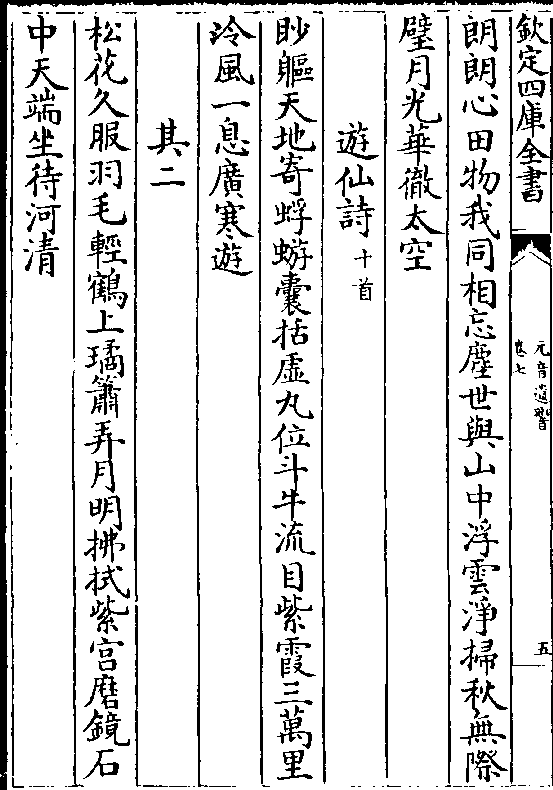 欽定四庫全書
元音遺響
卷七
五
朗朗心田物我同相忘塵世與山中浮雲淨掃秋無際
璧月光華徹太空
遊仙詩十首
眇軀天地寄蜉蝣囊括虛丸位斗牛流目紫霞三萬里
泠風一息廣寒遊
其二
松花久服羽毛輕鶴上璚簫弄月明拂拭紫宫磨鏡石
中天端坐待河清